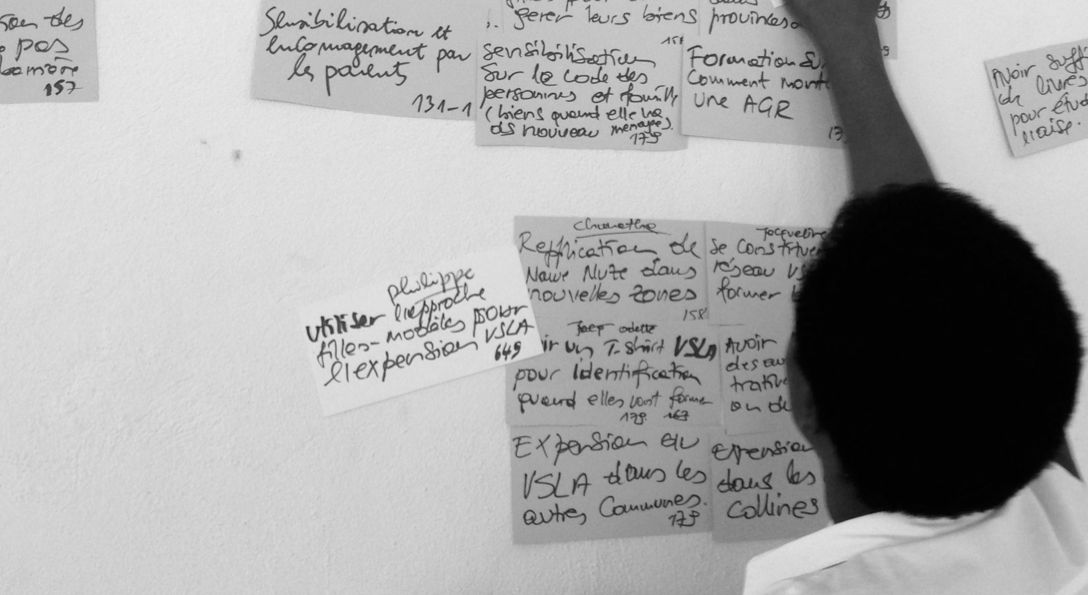 son des
pas
157
Sensibilisation et
encouragement par
les parents
131-1
gerer leurs biens
sensibilisation
sur le code des
personnes et famille
(biens quand elle va
ds nouveau menages).
179
provinces
Formation
Comment mont
une AGR
Avoir suff
de livres
pour étud
liaise.
philippe
utiliser l'approche
filles-modèles pour
l'expension VSLA
649
Repplication de
Nawe Nuze dans
nouvelles zones
158
Jacqueline
se constitue
réseau VS
former
odette
ir un T-shirt VSLA
pour identification
quand elles vont former
179 167
Avoir
des au
trative
on d
Expension du
VSLA dans les
autres Communes.
179
Epension
dans les
collines